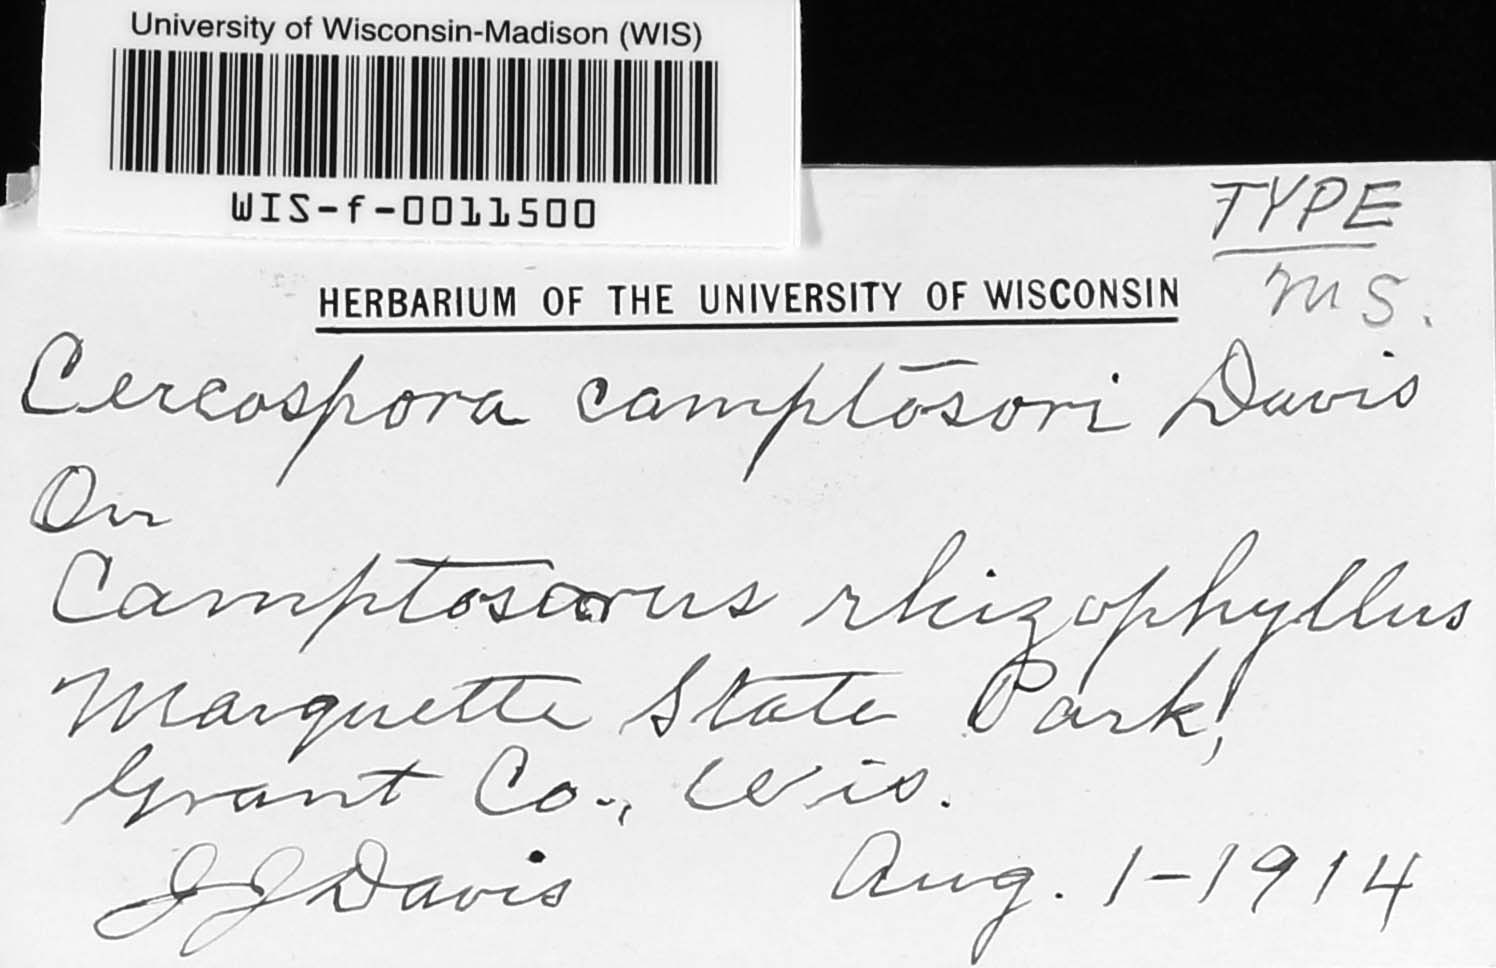 University of Wisconsin-Madison (WIS)
WIS-f-0011500
TYPE
MS.
HERBARIUM OF THE UNIVERSITY OF WISCONSIN
Cercospora camptosori Davis
On
Camptosorus rhizophyllus
Marquette State Park,
Grant Co., Wis.
J J Davis Aug. 1-1914